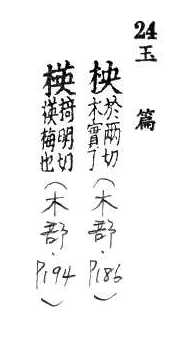 24玉篇
柍 於兩切木實了(木部.P186)
楧 掎明切楧梅也(木部.P194)